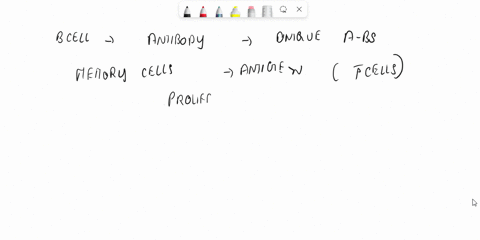 B CELL → ANTIBODY → UNIQUE A-BS
MEMORY CELLS → ANTIGEN ( T CELLS)
PROLIF